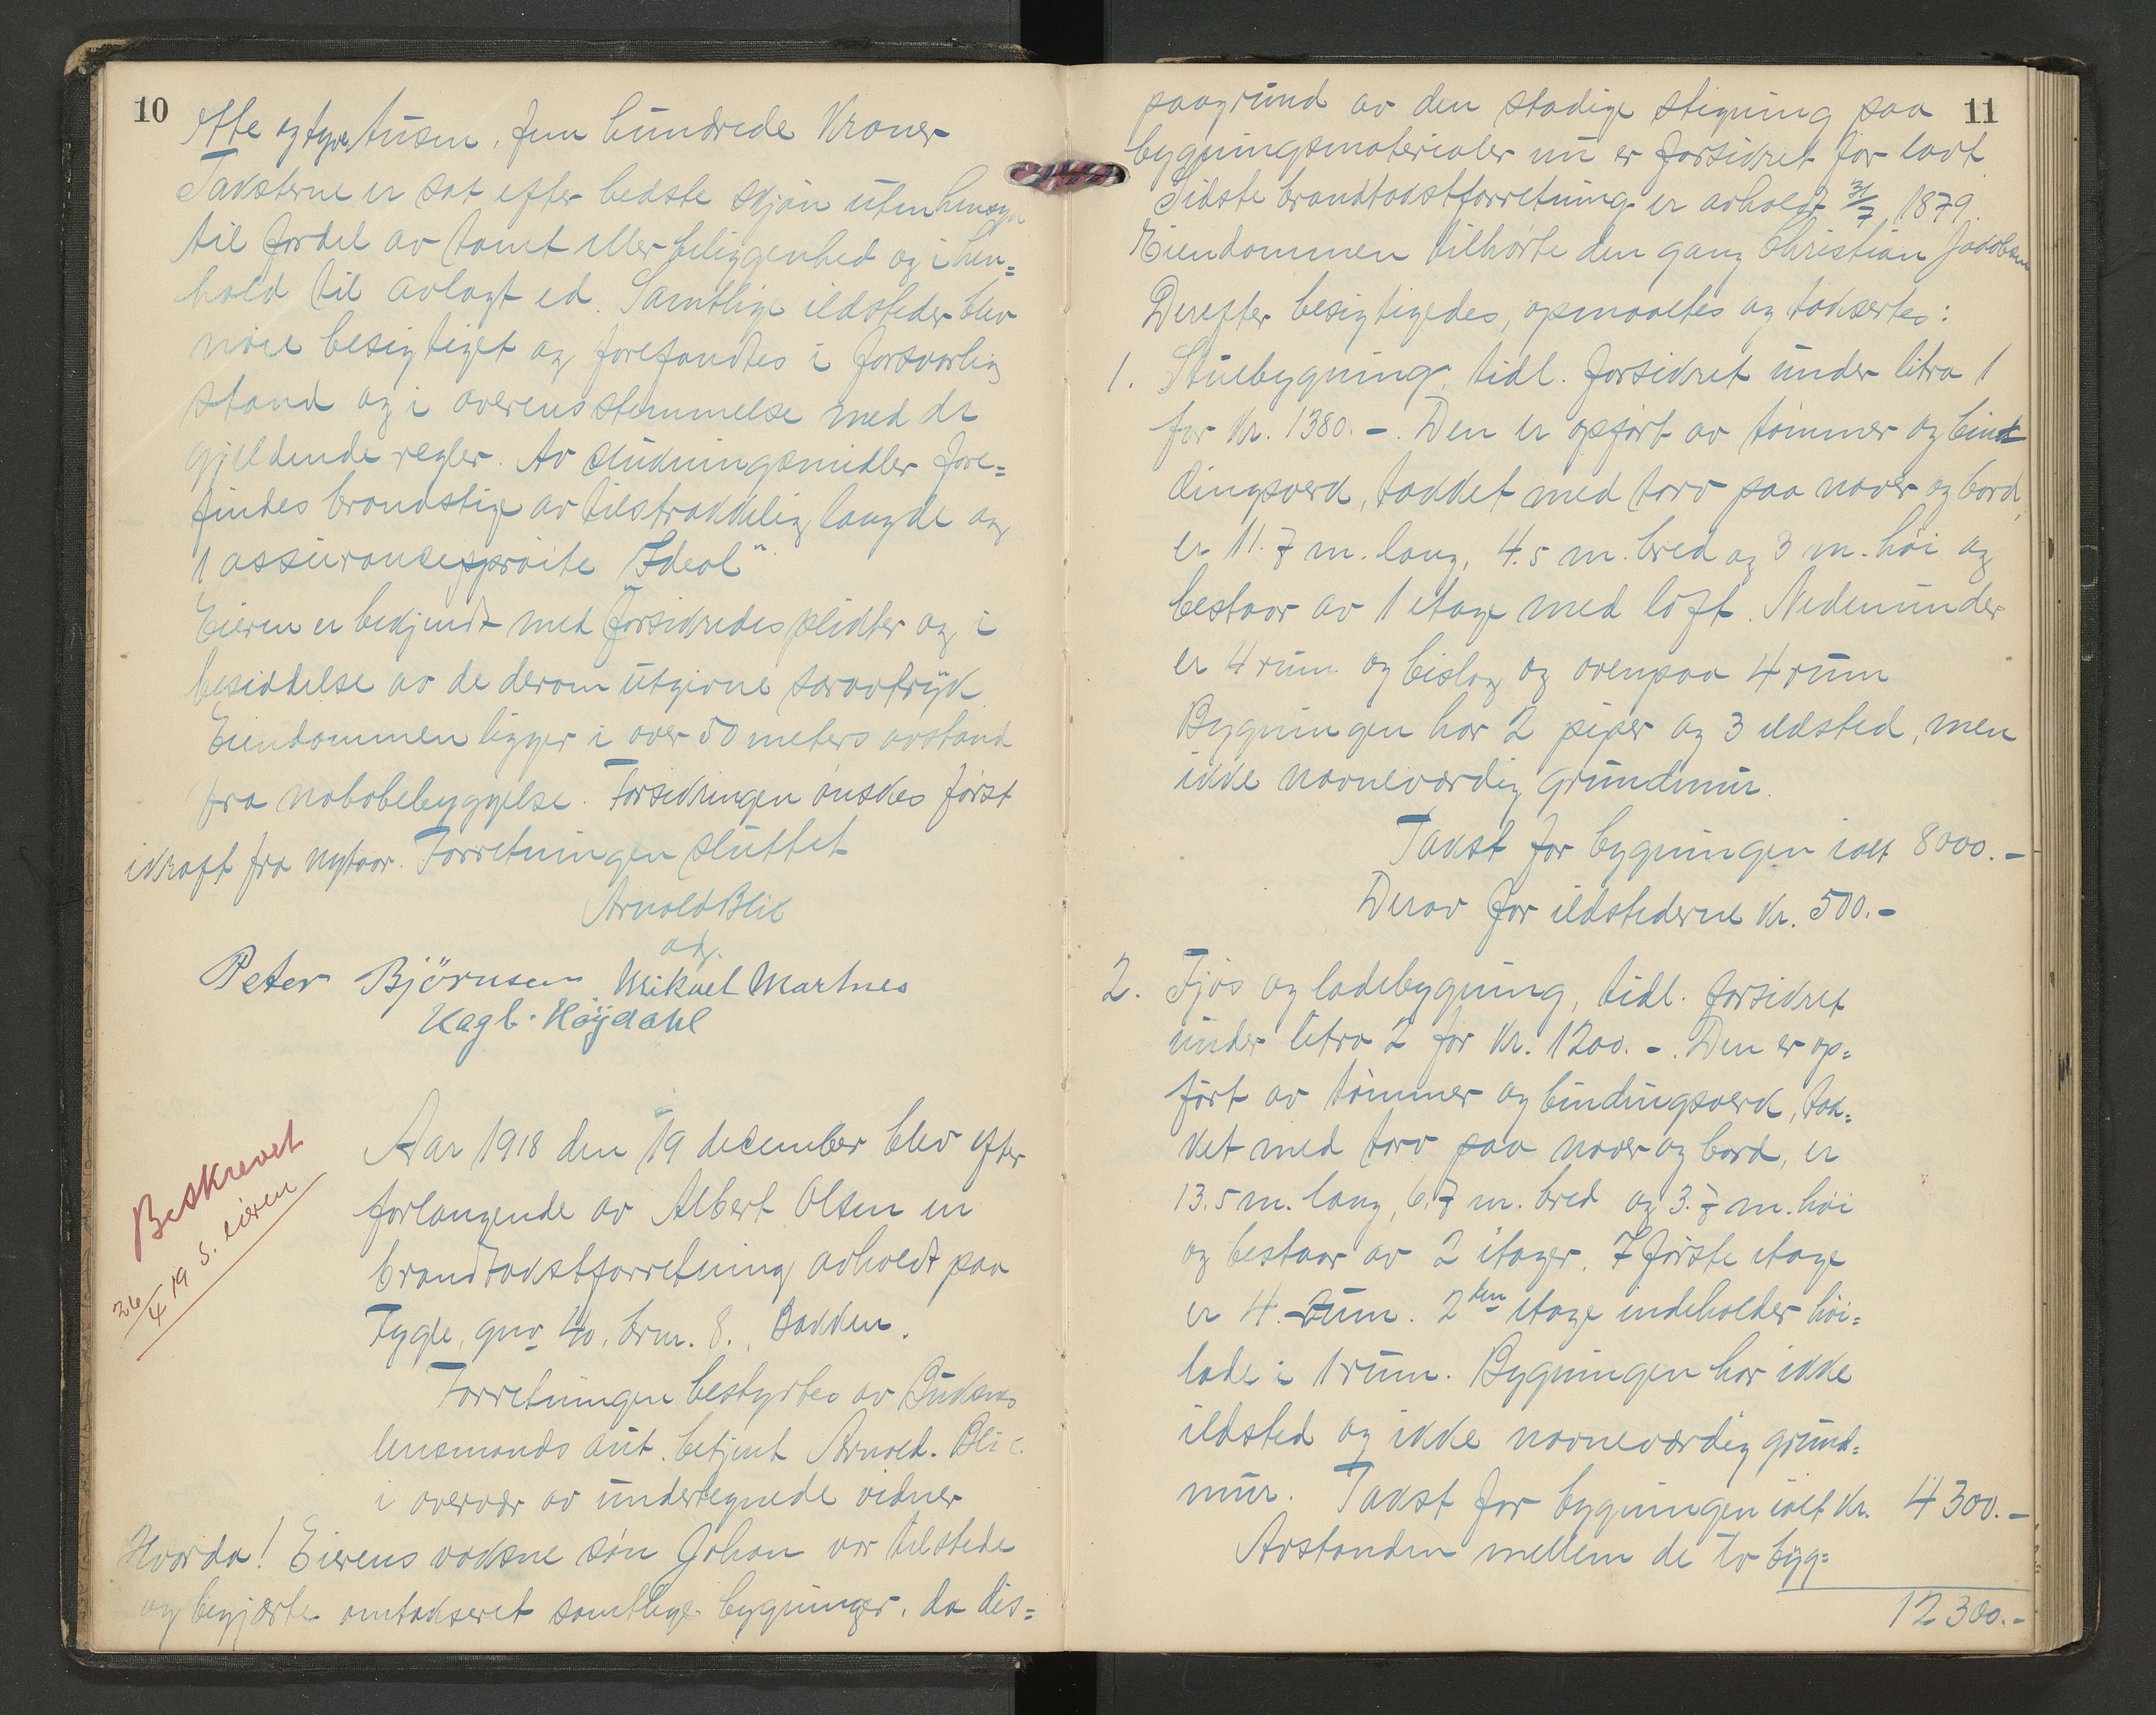 10
Otte og tyve tusen, fem hundrede Kroner
Taksterne er sat efter bedste skjøn uten hensyn
til fordel av tomt eller beliggenhed og i hen=
hold til avlagt ed. Samtlige ildsteder blev
nøie besigtiget og forefandtes i forsvarlig
stand og i overensstemmelse med de
gjeldende regler. Av slukningsmidler fore=
findes brandstige av tilstrækkelig længde og
1 assuransesprøite "Ideal"
Eieren er bekjendt med forsikredes plikter og i
besiddelse av de derom utgivne særavtryk.
Eiendommen ligger i over 50 meters avstand
fra nabobebyggelse. Forsikringen ønskes først
ikraft fra nytaar. Forretningen sluttet
Arnold Blix
Peter Björnsen Mikael Martnes
Hagb. Höydahl
Beskrevet
26/4 19 s. eieren
Aar 1918 den 19 december blev efter
forlangende av Albert Olsen en
brandtakstforretning avholdt paa
Fygle, gnr 40, brn. 8., Bakken.
Forretningen bestyrtes av Buksnes
lensmands aut. betjent Arnold. Blix
i overvær av undertegnede vidner
Hvorda! Eierens voksne søn Johan var tilstede
og begjærte omtakseret samtlige bygninger, da dis=
11
paagrund av den stadige stigning paa
bygningsmaterialer nu er forsikret for lavt
Sidste brandtakstforretning er avholdt 31/7 1879.
Eiendommen tilhørte den gang Christian Jakobsen
Derefter besigtigedes, opmaaltes og taksertes:
1. Stuebygning, tidl. forsikret under litra 1
for kr. 1380.-. Den er opført av tømmer og bind
dingsverk, takket med torv paa næver og bord,
er 11.7 m. lang, 4.5 m. bred og 3 m. høi og
bestaar av 1 etage med loft. Nedenunder
er 4 rum og bislag og ovenpaa 4 rum
Bygningen har 2 piper og 3 ildsted, men
ikke navneværdig grundmur.
Takst for bygningen ialt 8000.-
Derav for ildstederne kr. 500.-
2. Fjøs og ladebygning, tidl. forsikret
under litra 2 for kr. 1200.-. Den er op=
ført av tømmer og bindingsverk, tæk=
ket med torv paa næver og bord, er
13.5 m. lang, 6.7 m. bred og 3.7 m. høi
og bestaar av 2 etager. I første etage
er 4. rum. 2den etage indeholder høi=
lade i 1 rum. Bygningen har ikke
ildsted og ikke navneværdig grund=
mur. Takst for bygningen ialt kr. 4300.-
Avstanden mellem de to byg=
12300.-